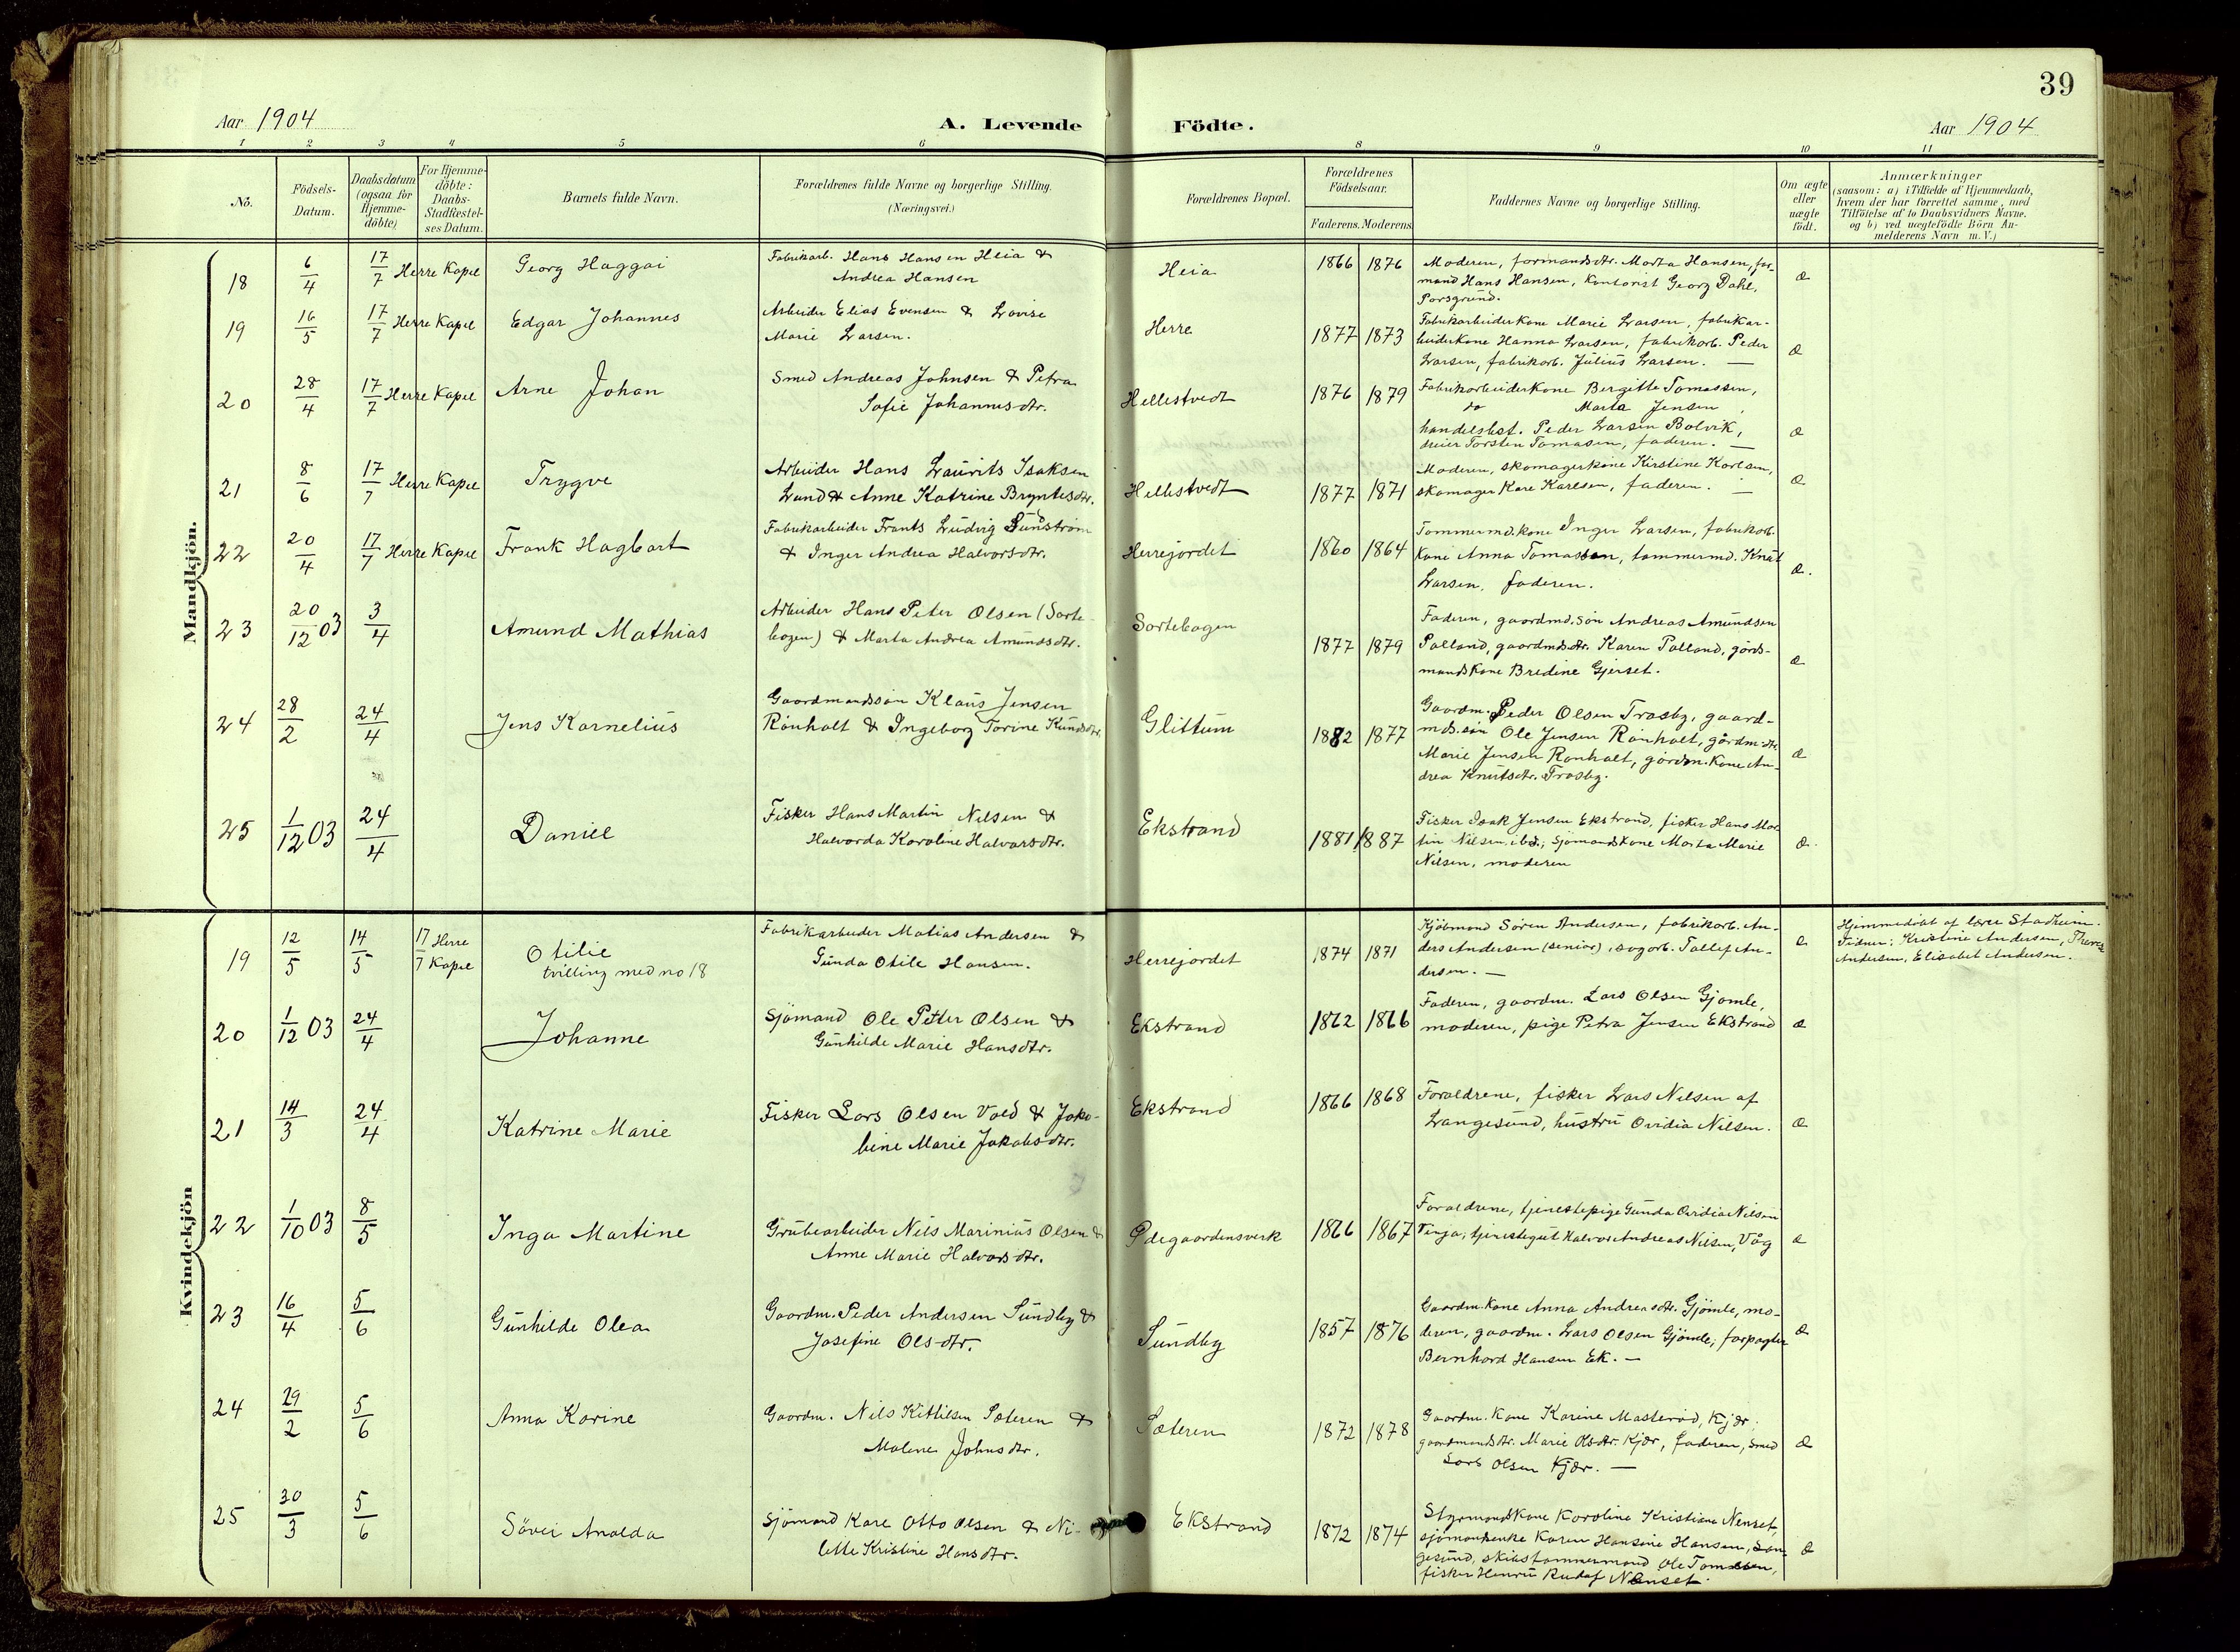 39
Aar 1904
A. Levende
Födte.
Aar 1904
1 2 3 4 5 6 8 9 10 11
No.
Födsels-Datum.
Daabsdatum (ogsaa for Hjemme-döbte)
For Hjemme-döbte: Daabs-Stadfæstel-ses Datum.
Barnets fulde Navn.
Forældrenes fulde Navne og borgerlige Stilling.
(Næringsvei.)
Forældrenes Bopæl.
Forældrenes Födselsaar.
Faderens. Moderens
Faddernes Navne og borgerlige Stilling.
Om ægte eller uægte födt.
Anmærkninger
(saasom: a) i Tilfælde af Hjemmedaab,
hvem der har forrettet samme, med
Tilföielse af to Daabsvidners Navne.
og b) ved uægtefödte Börn An-
melderens Navn m. V.)
Mandkjön.
18 6/4 17/7 Herre Kapel Georg Haggai
Fabrikarb. Hans Hansen Heia &
Andrea Hansen
Heia 1866 1876
Moderen, formandsdtr. Marta Hansen, for-
mand Hans Hansen, kontorist Georg Dahl,
Porsgrund.
æ
19 16/5 17/7 Herre Kapel Edgar Johannes
Arbeider Elias Evensen & Lovise
Marie Larsen.
Herre 1877 1873
Fabrikarbeiderkone Marie Larsen, fabrikar-
beiderkone Hanna Larsen, fabrikarb. Peder
Larsen, fabrikarb. Julius Larsen. —
æ
20 28/4 17/7 Herre Kapel Arne Johan
Smed Andreas Johnsen & Petra
Sofie Johannesdtr.
Hellestvedt 1876 1879
Fabrikarbeiderkone Bergitte Tomassen,
do Marta Jensen,
handelsbst. Peder Larsen Bolvik,
dreier Torsten Tomasen, faderen. —
æ
21 8/6 17/7 Herre Kapel Trygve
Arbeider Hans Laurits Isaksen
Lund & Anne Katrine Bryntesdtr.
Hellestvedt 1877 1871
Moderen, skomagerkone Kirstine Karlsen,
skomager Kare Karlsen, faderen. —
æ
22 20/4 17/7 Herre Kapel Frank Hagbart
Fabrikarbeider Frants Ludvig Sundström
& Inger Andrea Halvorsdtr.
Herrejordet 1860 1864
Tommermd.kone Inger Larsen, fabrikarb.
kone Anna Tomassen, tommermd. Knut
Larsen, faderen.
æ.
23 20/12 03 3/4 Amund Mathias
Arbeider Hans Peter Olsen (Sorte-
bogen) & Marta Andrea Amundsdtr.
Sortebogen 1877 1879
Faderen, gaardmd.sön Andreas Amundsen
Palland, gaardmdsdtr. Karen Palland, gårds-
mandskone Bredine Gjerset.
æ
24 28/2 24/4 Jens Kornelius
Gaardmandssön Klaus Jensen
Rönholt & Ingeborg Torine Knudsdtr.
Glittum 1882 1877
Gaardm. Peder Olsen Trosby, gaard-
mds.sön Ole Jensen Rönholt, gårdm.dtr.
Marie Jensen Rönholt, gårdm.kone An-
drea Knutsdtr. Trosby.
æ
25 1/12 03 24/4 Daniel
Fisker Hans Martin Nilsen &
Halvorda Karoline Halvorsdtr.
Ekstrand 1881 1887
Fisker Isak Jensen Ekstrand, fisker Hans Mar-
tin Nilsen ibd., sjömandskone Marta Marie
Nilsen, moderen
æ.
Kvindekjön
19 12/5 14/5 17/7 Herre Kapel Otilie
tvilling med no 18
Fabrikarbeider Matias Andersen &
Gunda Otile Hansen.
Herrejordet 1874 1871
Kjöbmand Sören Andersen, fabrikarb. An-
ders Andersen (senior), sagarb. Tallef An-
dersen. —
æ
Hjemmedöbt af lærer Stadheim.
Vidner: Kristine Andersen,
Andersen, Elisabet Andersen.
20 1/12 03 24/4 Johanne
Sjömand Ole Petter Olsen &
Gunhilde Marie Hansdtr.
Ekstrand 1862 1866
Faderen, gaardm. Lars Olsen Gjömle,
moderen, pige Petra Jensen Ekstrand
æ
21 14/3 24/4 Katrine Marie
Fisker Lars Olsen Vold & Jako-
bine Marie Jakobsdtr.
Ekstrand 1866 1868
Foraldrene, fisker Lars Nilsen af
Langesund, hustru Ovidia Nilsen.
æ
22 1/10 03 8/5 Inga Martine
Grubearbeider Nils Marinius Olsen &
Anne Marie Halvorsdtr.
Ödegaardensverk 1866 1867
Foraldrene, tjenestepige Gunda Ovidia Nilsen
Tinja, tjenestegut Halvor Andreas Nilsen, Våg
æ
23 16/4 5/6 Gunhilde Olea
Gaardm. Peder Andersen Sundby &
Josefine Olsdtr.
Sundby 1857 1876
Gaardm.kone Anna Andreasdtr. Gjömle, mo-
deren, gaardm. Lars Olsen Gjömle, forpagter
Bernhard Hansen Ek. —
æ
24 29/2 5/6 Anna Karine
Gaardm. Nils Kittilsen Sæteren &
Malene Johnsdtr.
Sæteren 1872 1878
Gaardm. kone Karine Masteröd, Kjær,
gaardmandsdtr. Marie Olsdtr. Kjær, faderen, smed
Lars Olsen Kjær. —
æ
25 30/3 5/6 Sövei Analda
Sjömand Kare Otto Olsen & Ni-
lette Kristine Hansdtr.
Ekstrand 1872 1874
Styrmandskone Karoline Kristiane Nenset,
sjömandsenke Karen Hansine Hansen, Lan-
gesund, skibstommermand Ole Tomassen,
fisker Henrik Rudolf Nenset.
æ